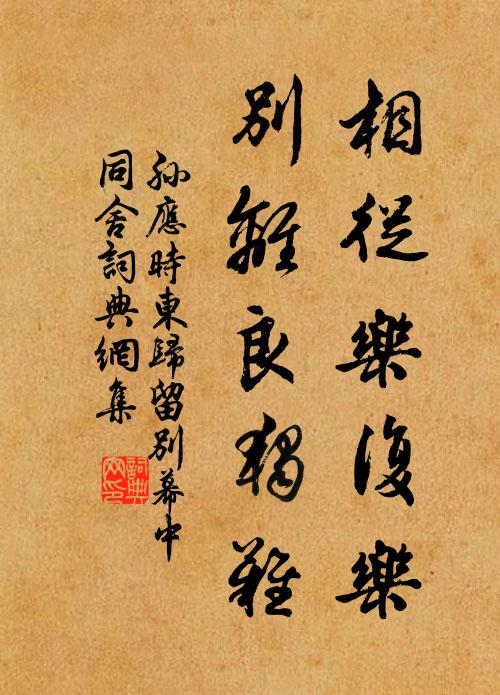 相從樂復樂
別離良獨難
孫應時東歸留別幕中
同舍詞典網集
詞典
网印